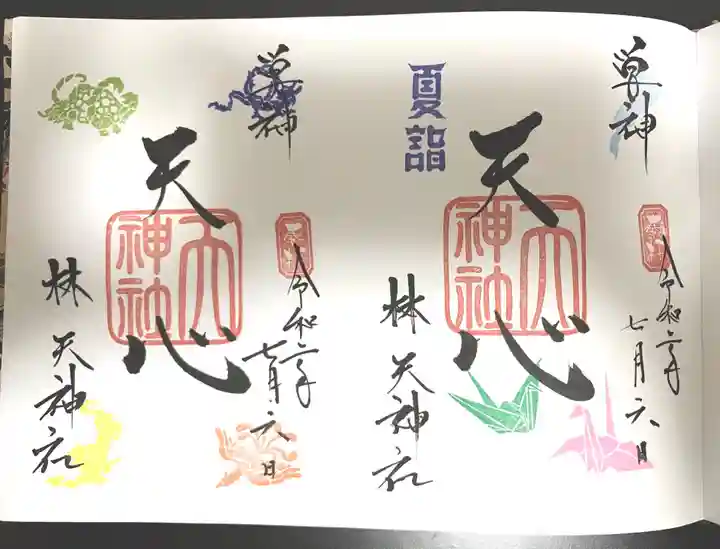 令和二年
七月六日
夏詣
天心
天神社
林 天神社
令和二年
七月六日
天心
天神社
林 天神社